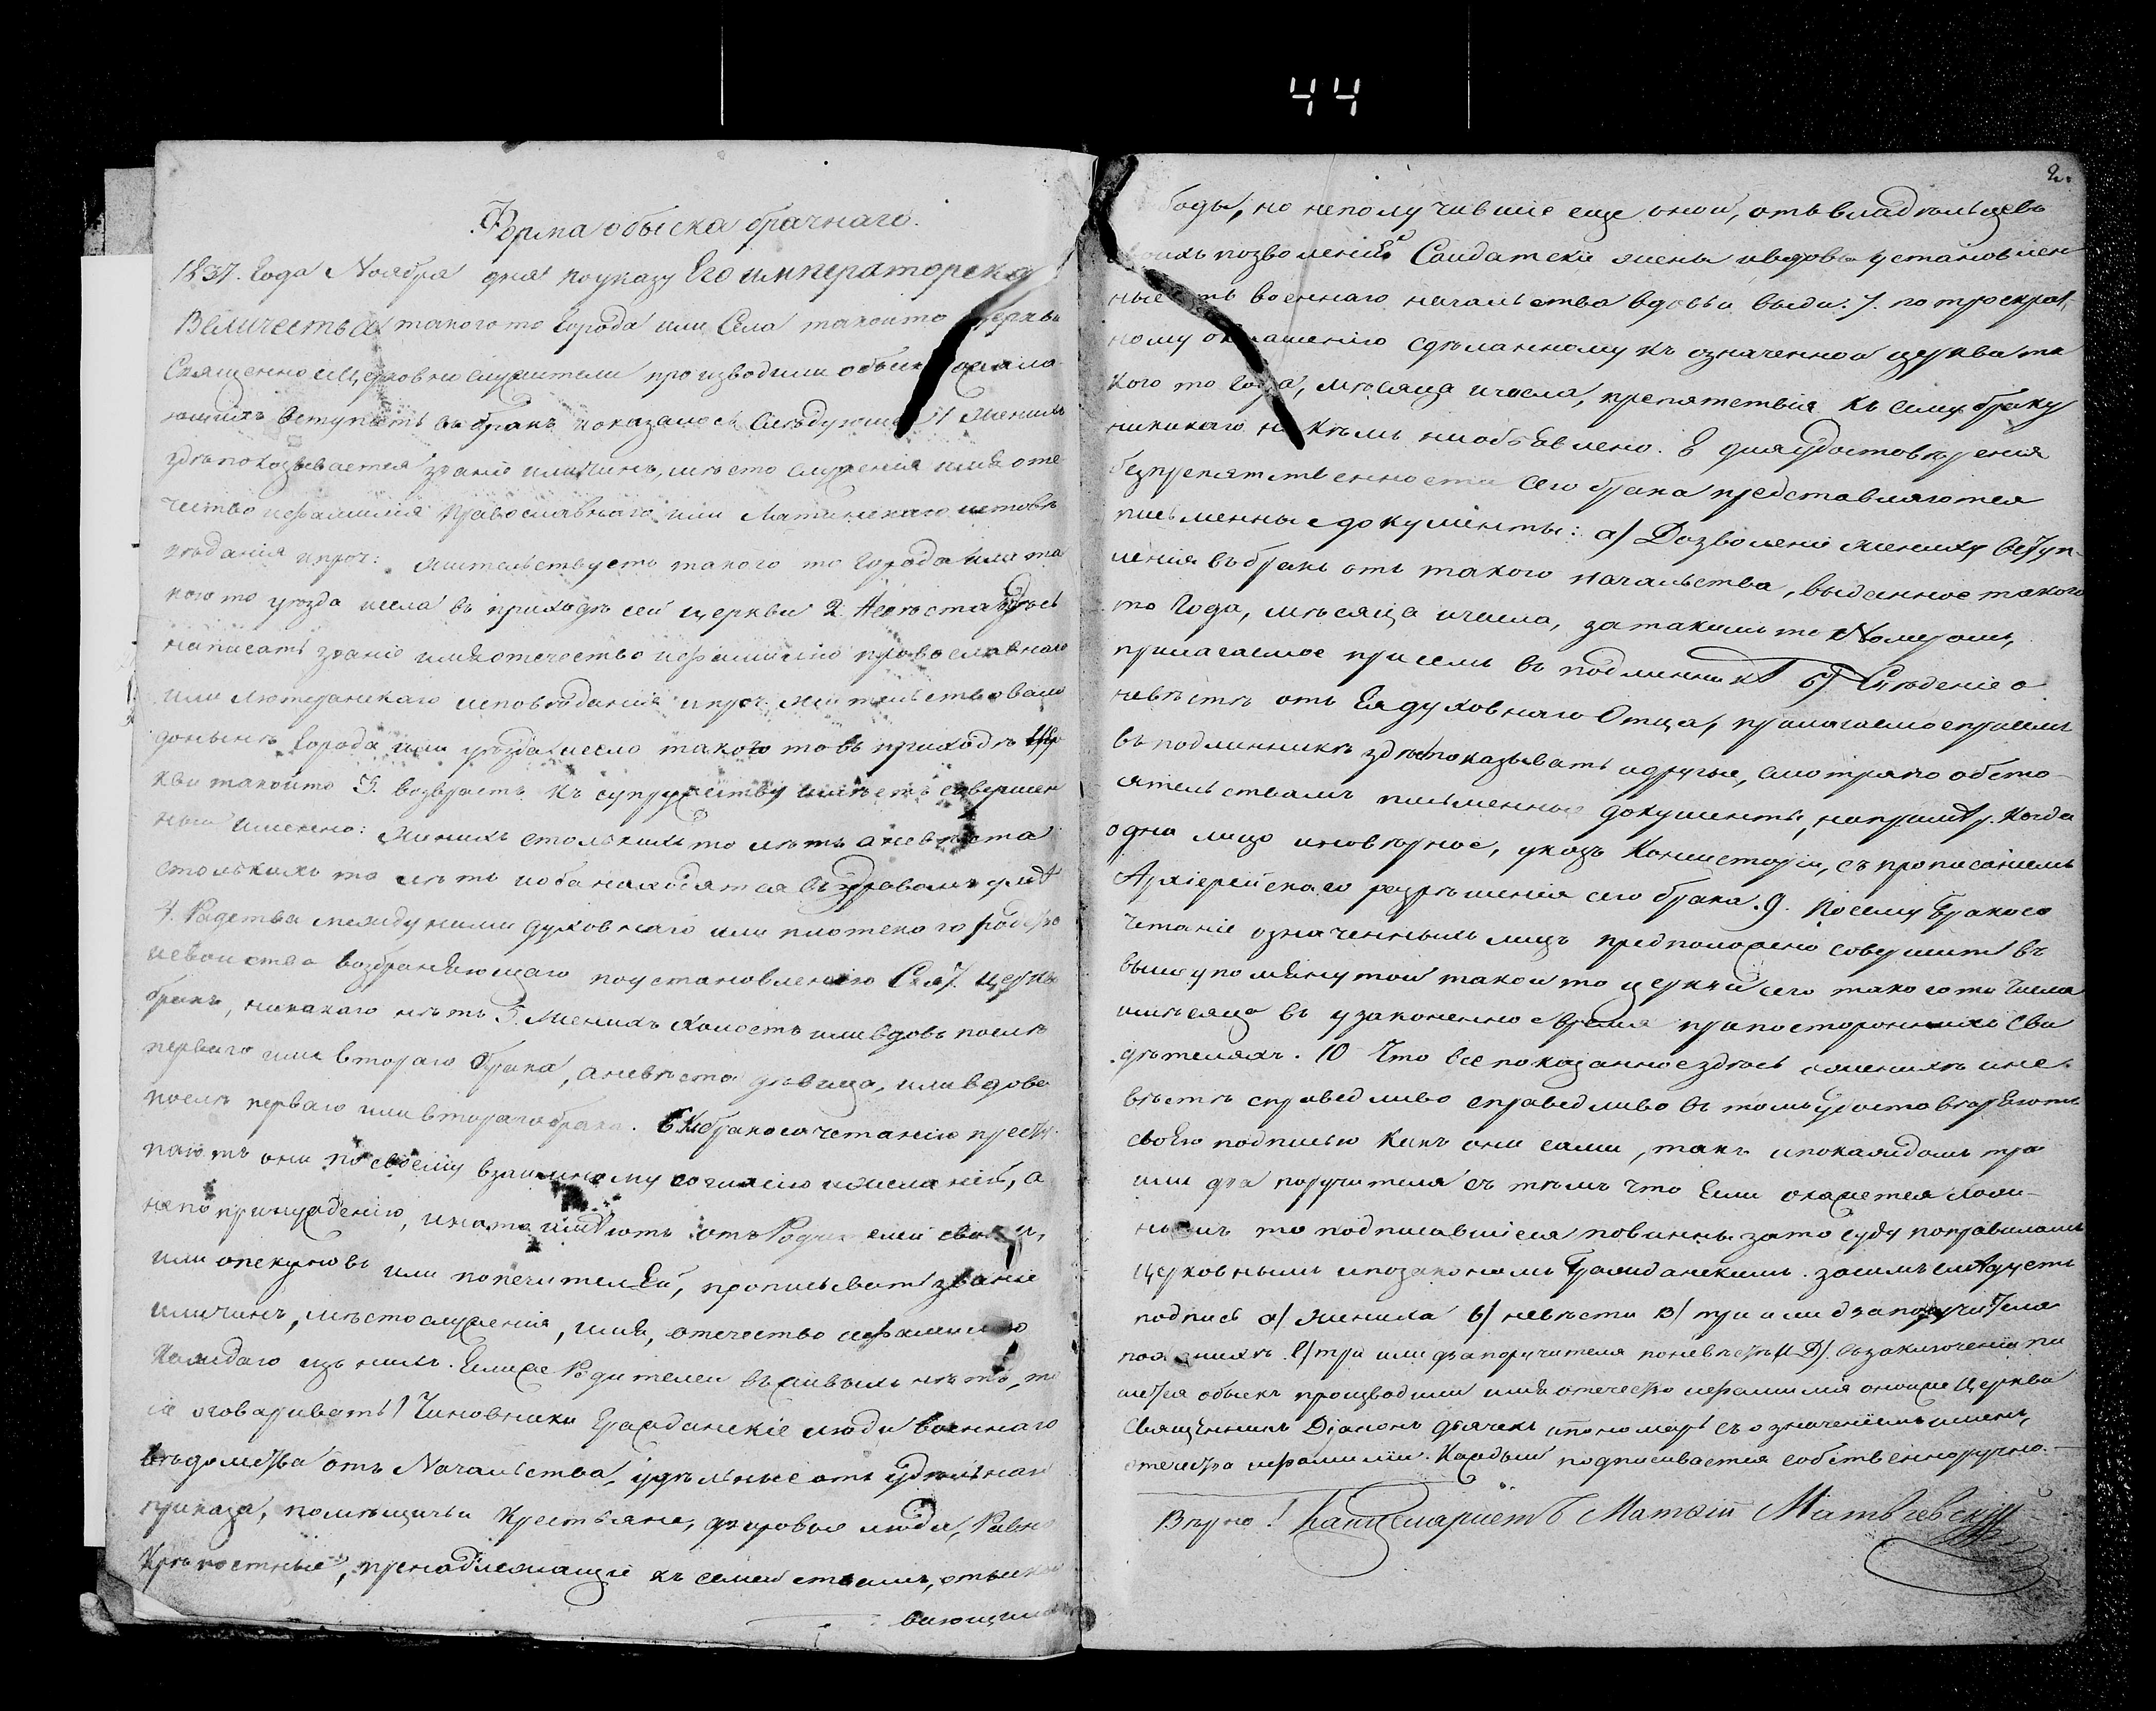 44
2.
Форма обыска брачнаго.
1837. Года Ноября дня по указу Его императорска
Величества такого то Города или Села такой то церкви
Священно и Церковно служители производили обыск о жела
ющихъ вступить въ бракъ и оказалось следующее 1 Женихъ
здѣ показывается званіе или чинъ, мѣсто служенія имя оте
чество и фамилія Православнаго или Латинскаго исповѣ
вѣданія и проч: жительствуетъ такого то Города или та
кого то уѣзда и села въ приходѣ сей церкви 2. Невѣста здѣсь
написать званіе имя отечество и фамилію православнаго
или лютеранскаго исповѣданія и проч. жительствовало
донынѣ Города или уѣзда и село такого то въ приходѣ Цер
кви такой то 3. возврастъ къ супружеству имѣетъ совершен
ный именно: Женихъ столькихъ то лѣтъ а невѣста
столькихъ то лѣтъ и оба находятся въ здравомъ умѣ
4. Родства между ними духовнаго или плотского родство
и свойства возбраняющаго по установленію Свят. церкви
бракъ, никакаго нѣтъ 5. Женихъ холостъ или вдовъ послѣ
перваго или втораго брака, а невѣста дѣвица, или вдова
послѣ перваго или втораго брака. 6 Къ бракосочетанію присту
паютъ они по своему взаимному согласію и желанію, а
не по принужденію, и на то имѣютъ отъ Родителей своихъ,
или опекуновъ или попечителей, прописывать званіе
или чинъ, мѣсто служенія, имя, отечество и фамилію
каждаго изъ нихъ. Если же Родителей въ живыхъ нѣтъ, то
іе оговаривать! Чиновники Гражданскіе люди военнаго
вѣдомства отъ Начальства, удѣльные отъ удѣльнаго
приказа, помѣщичьи Крестьяне, дворовые люди, Равно
Крѣпостные, пренадлежащіе къ семействамъ, отыски
вающимъ
боды, но неполучившіе еще оной, отъ владѣльцевъ
своихъ позволеніе Солдатскія жены и вдовы установлен
ные отъ военнаго начальства вдовьи виды: 7. по троекрат
ному оглашенію сдѣланному въ означенной церкви та
кого то Года, мѣсяца и числа, препятствія къ сему браку
никакаго ни кѣмъ не объявлено. 8 для удостовѣренія
безпрепятственности сего брака представляются
письменные документы: а) Дозволеніе жениху вступ-
ленія въ бракъ отъ такого начальства, выданное такого
то Года, мѣсяца и числа, за такимъ то Номеромъ,
прилагаемое при семъ въ подлинникѣ б) Свѣденіе о
невѣстѣ отъ Ея духовнаго Отца, прилагаемое при семъ
въ подлинникѣ здѣсь показывать и другіе, смотря по обсто-
ятельствамъ письменные документы, напримѣр. когда
одно лицо иновѣрное, указъ Консисторіи, съ прописаніемъ
Архіерейскаго разрѣшенія сего брака. 9. Посему Бракосо
четаніе означенныхъ лицъ предположено совершить въ
вышеупомянутой такой то церкви сего такого то числа
и мѣсяца въ узаконенное время при постороннихъ сви
дѣтеляхъ. 10 Что все показанное здѣсь о женихѣ и не
вѣстѣ справедливо справедливо въ томъ удостовѣряютъ
своею подписью какъ они сами, такъ и по каждомъ три
или два поручителя съ тѣмъ что Если окажется лож-
нымъ то подписавшіеся повинны за то суду по правиламъ
Церковнымъ и по законамъ Гражданскимъ. засимъ слѣдуетъ
подпись а) жениха б) невѣсты в) три или два поручителя
по женихѣ. г) три или два поручителя по невѣстѣ Д). въ заключеніи пи
шется обыскъ производили имя отечество и фамилія оной же Церкви
Священникъ Діаконъ дьячекъ и пономарь съ означеніемъ имени,
отечества и фамиліи. Каждый подписывается собственноручно.—
Вѣрно: Канцеляристъ Матвій Матвѣевскій